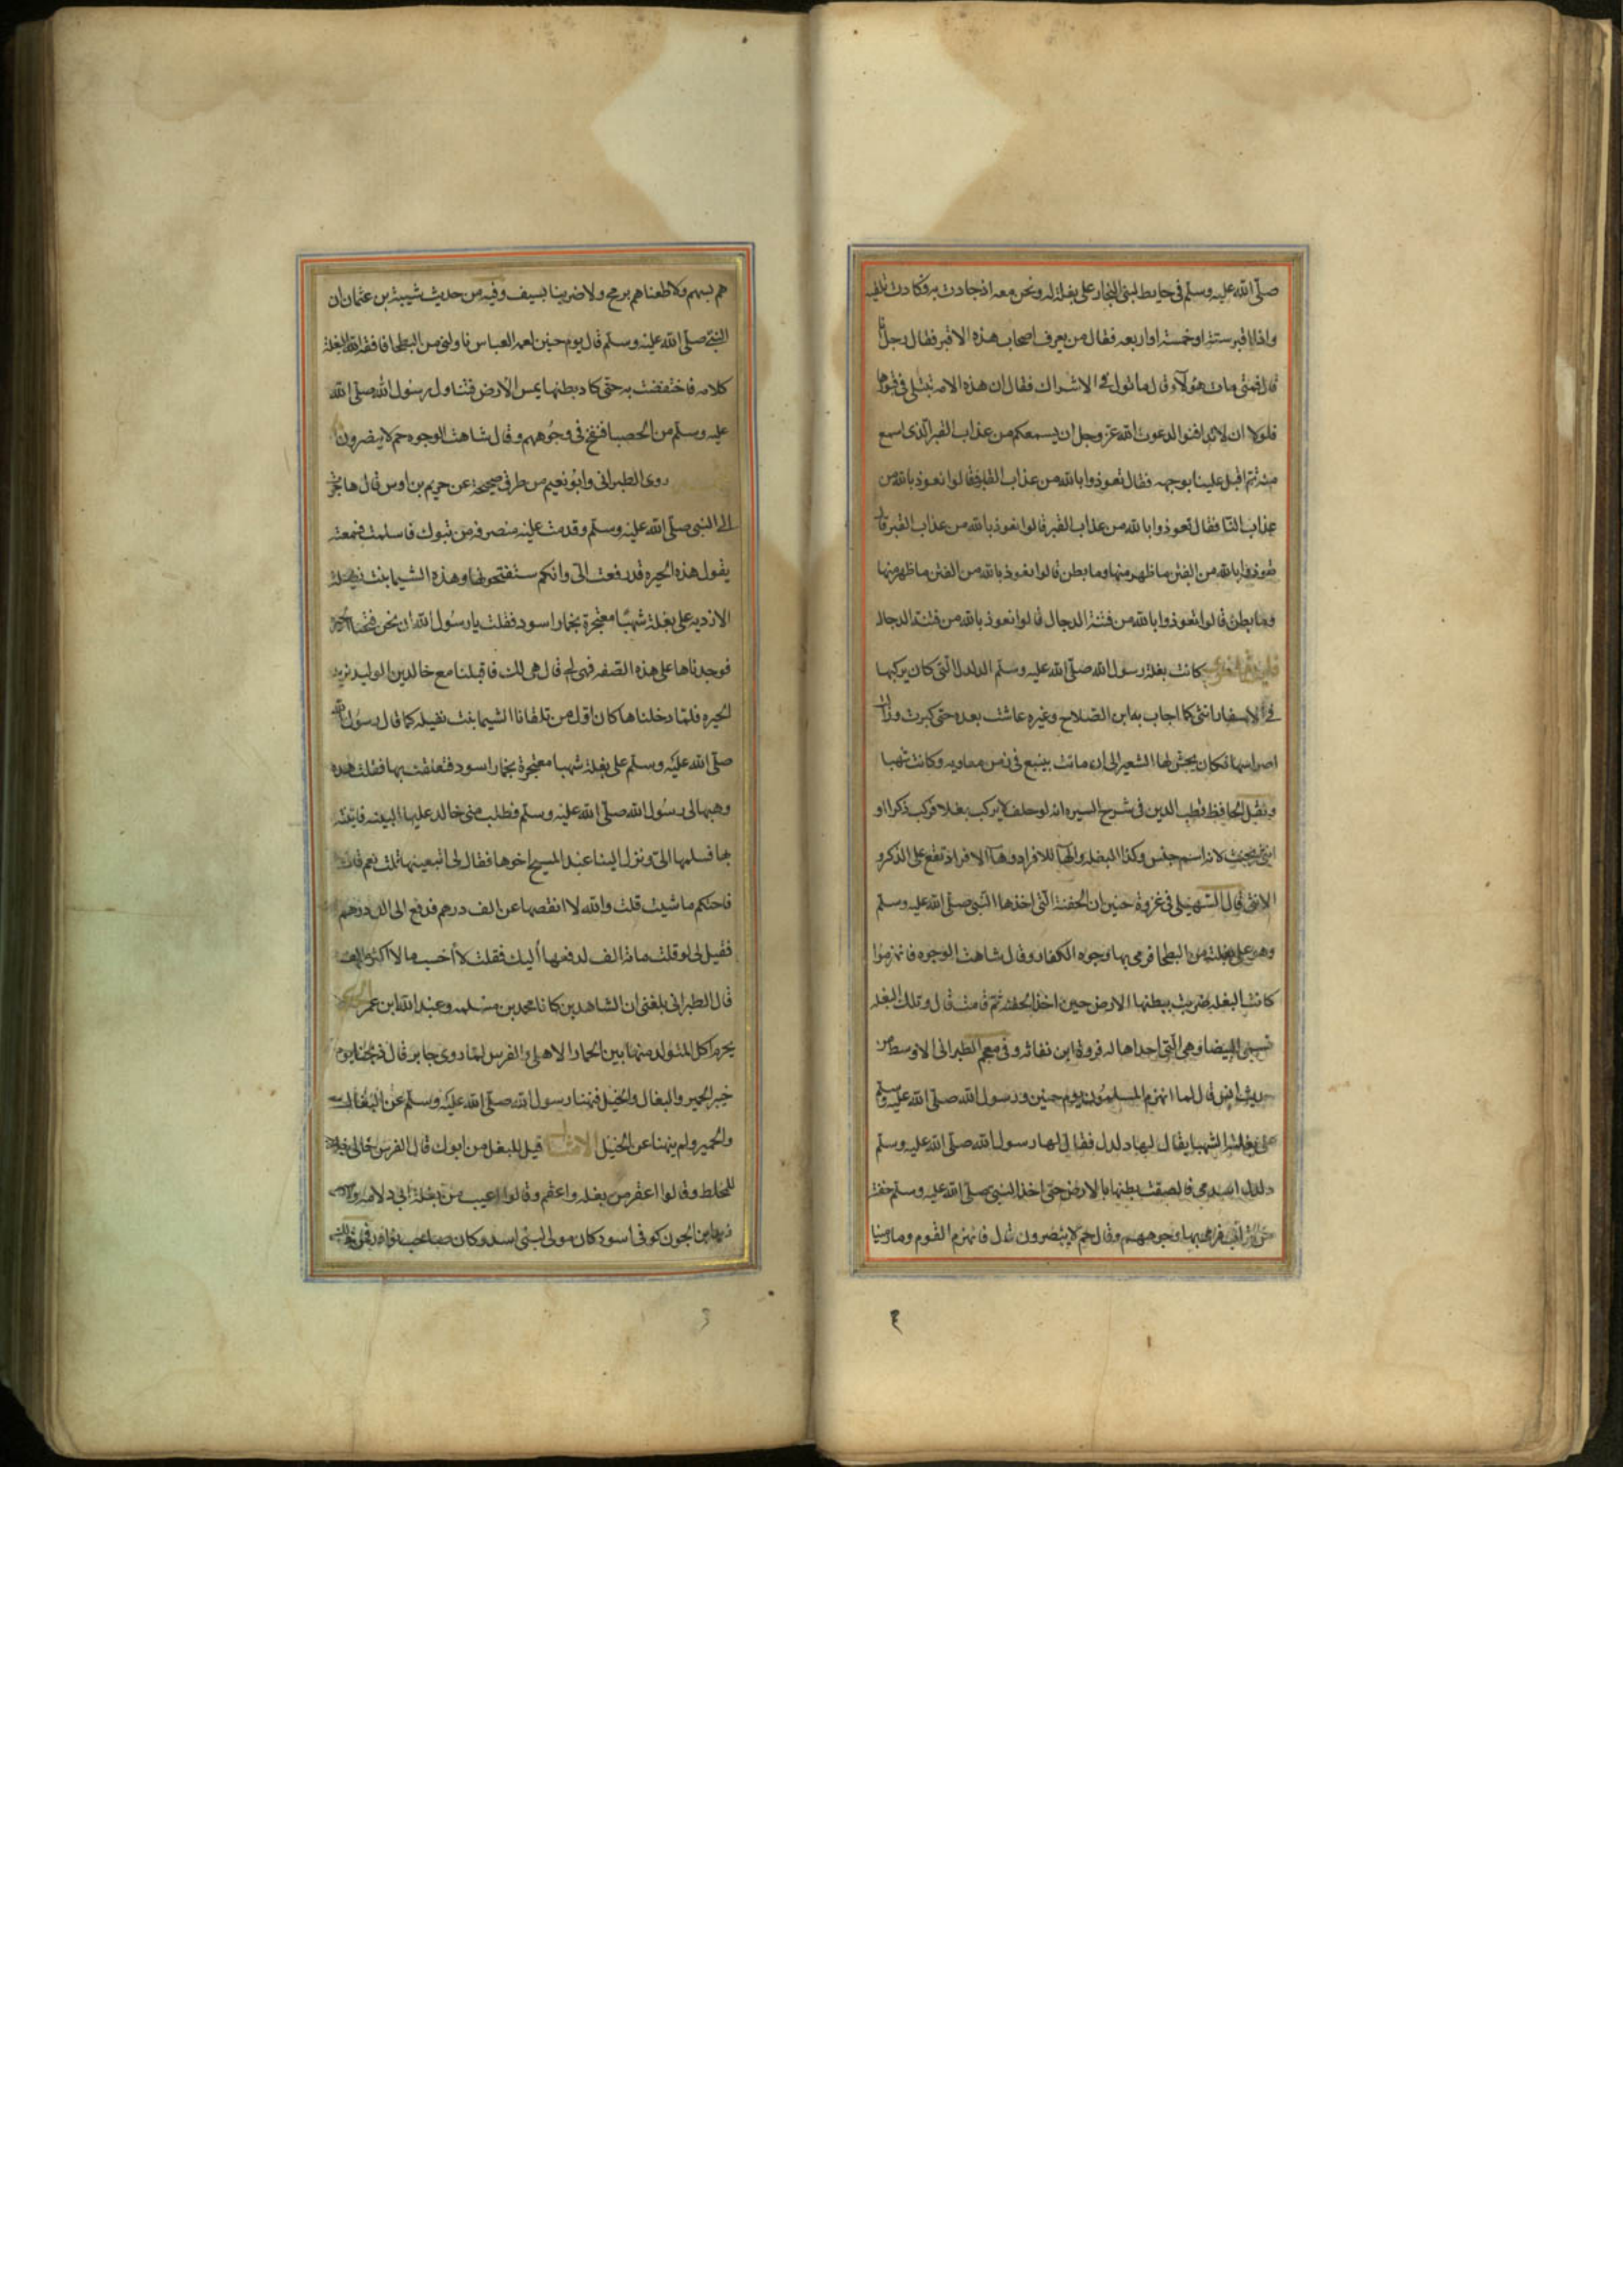 صلى الله عليه وسلم في حايط لبني النجار على بغلة له ونحن معه اذ حادت به وكادت تلقيه
واذا اقبر ستة او خمسة او اربعه فقال من يعرف اصحاب هذه الاقبر فقال رجل انا
قال فمتى مات هؤلاء قال ماتوا في الاشراك فقال ان هذه الامه تبتلى في قبورها
فلولا ان لا تدافنوا لدعوت الله عز وجل ان يسمعكم من عذاب القبر الذى اسمع
منه ثم اقبل علينا بوجهه فقال تعوذوا بالله من عذاب القبر فقالوا نعوذ بالله من
عذاب النا فقال تعوذوا بالله من عذاب القبر قالوا نعوذ بالله من عذاب القبر قال
تعوذوا بالله من الفتن ما ظهر منها وما بطن قالوا نعوذ بالله من الفتن ما ظهر منها
وما بطن قالوا تعوذوا بالله من فتنة الدجال قالوا نعوذ بالله من فتنة الدجال
كانت بغلة رسول الله صلى الله عليه وسلم الدلدل التى كان يركبها
في الاسفار انثى كما اجاب به ابن الصلاح وغيره عاشت بعده حتى كبرت وزالت
اضراسها فكان يجش لها الشعير الى ان ماتت بينبع في زمن معاويه وكانت شهبا
ونقل الحافظ قطب الدين في شرح السيره انه لو حلف لا يركب بغلا فركب ذكرا او
انثى يحنث لانه اسم جنس وكذا البغله والها للافراد وها الافراد تقع على الذكر و
الانثى قال السهيلى في غزوة حنين ان الحفنة التى اخذها النبى صلى الله عليه وسلم
وهو على بغلته من البطحا فرمى بها وجوه الكفار وقال شاهت الوجوه فانهزموا
كانت البغله ضربت ببطنها الارض حين اخذ الحفنه ثم قامت قال وتلك البغله
تسمى البيضا وهى التى اهداها له فروة ابن نفاثه وفى معجم الطبرانى الاوسط من
حديث انس قال لما انهزم المسلمون يوم حنين ورسول الله صلى الله عليه وسلم
على بغلته الشهبا يقال لها دلدل فقال لها رسول الله صلى الله عليه وسلم
دلدل اسدى فالصقت بطنها بالارض حتى اخذ النبى صلى الله عليه وسلم حفنة
من تراب فرمى بها وجوههم وقال حم لا ينصرون قال فانهزم القوم وما رمينا
هم بسهم ولا طعناهم برمح ولا ضربنا بسيف وفيه من حديث شيبة بن عثمان ان
النبى صلى الله عليه وسلم قال يوم حنين لعمه العباس ناولنى من البطحا فافقه الله البغلة
كلامه فاختفضت به حتى كاد بطنها يمس الارض فتناول رسول الله صلى الله
عليه وسلم من الحصبا فنفخ في وجوههم وقال شاهت الوجوه حم لا ينصرون
روى الطبرانى وابو نعيم من طرق صحيحة عن خريم بن اوس قال هاجرت
الى النبى صلى الله عليه وسلم وقدمت عليه منصرفه من تبوك فاسلمت فسمعته
يقول هذه الحيره قد رفعت الى وانكم ستفتحونها وهذه الشيما بنت نفيلة
الازديه على بغلة شهبا معتجرة بخمار اسود فقلت يا رسول الله ان نحن فتحنا الحيرة
فوجدناها على هذه الصفه فهى لى قال هى لك فاقبلنا مع خالد بن الوليد نريد
الحيره فلما دخلناها كان اول من تلقانا الشيما بنت نفيله كما قال رسول الله
صلى الله عليه وسلم على بغلة شهبا معتجرة بخمار اسود فتعلقت بها فقلت هذه
وهبها لى رسول الله صلى الله عليه وسلم فطلب منى خالد عليها البينه فاتيته
بها فسلمها الى ونزل الينا عبد المسيح اخوها فقال لى اتبيعنيها قلت نعم قال
فاحتكم ما شيت قلت والله لا انقصها عن الف درهم فدفع الى الف درهم
فقيل لى لو قلت مائة الف لدفعها اليك فقلت لا احسب مالا اكثر من الف
قال الطبرانى بلغنى ان الشاهدين كانا محمد بن مسلمه وعبد الله ابن عمر الحكم
يحرم اكل المتولد منها بين الحمار الاهلى والفرس لما روى جابر قال ذبحنا يوم
خيبر الحمير والبغال والخيل فنهنا رسول الله صلى الله عليه وسلم عن البغال
والحمير ولم ينهنا عن الخيل الامثال قيل للبغل من ابوك قال الفرس خالى
للمخلط وقالوا اعقر من بغله واعقم وقالوا اعيب من بغلة ابى دلامه
ابن الجون كوفى اسود كان مولى لبنى اسد وكان صاحب